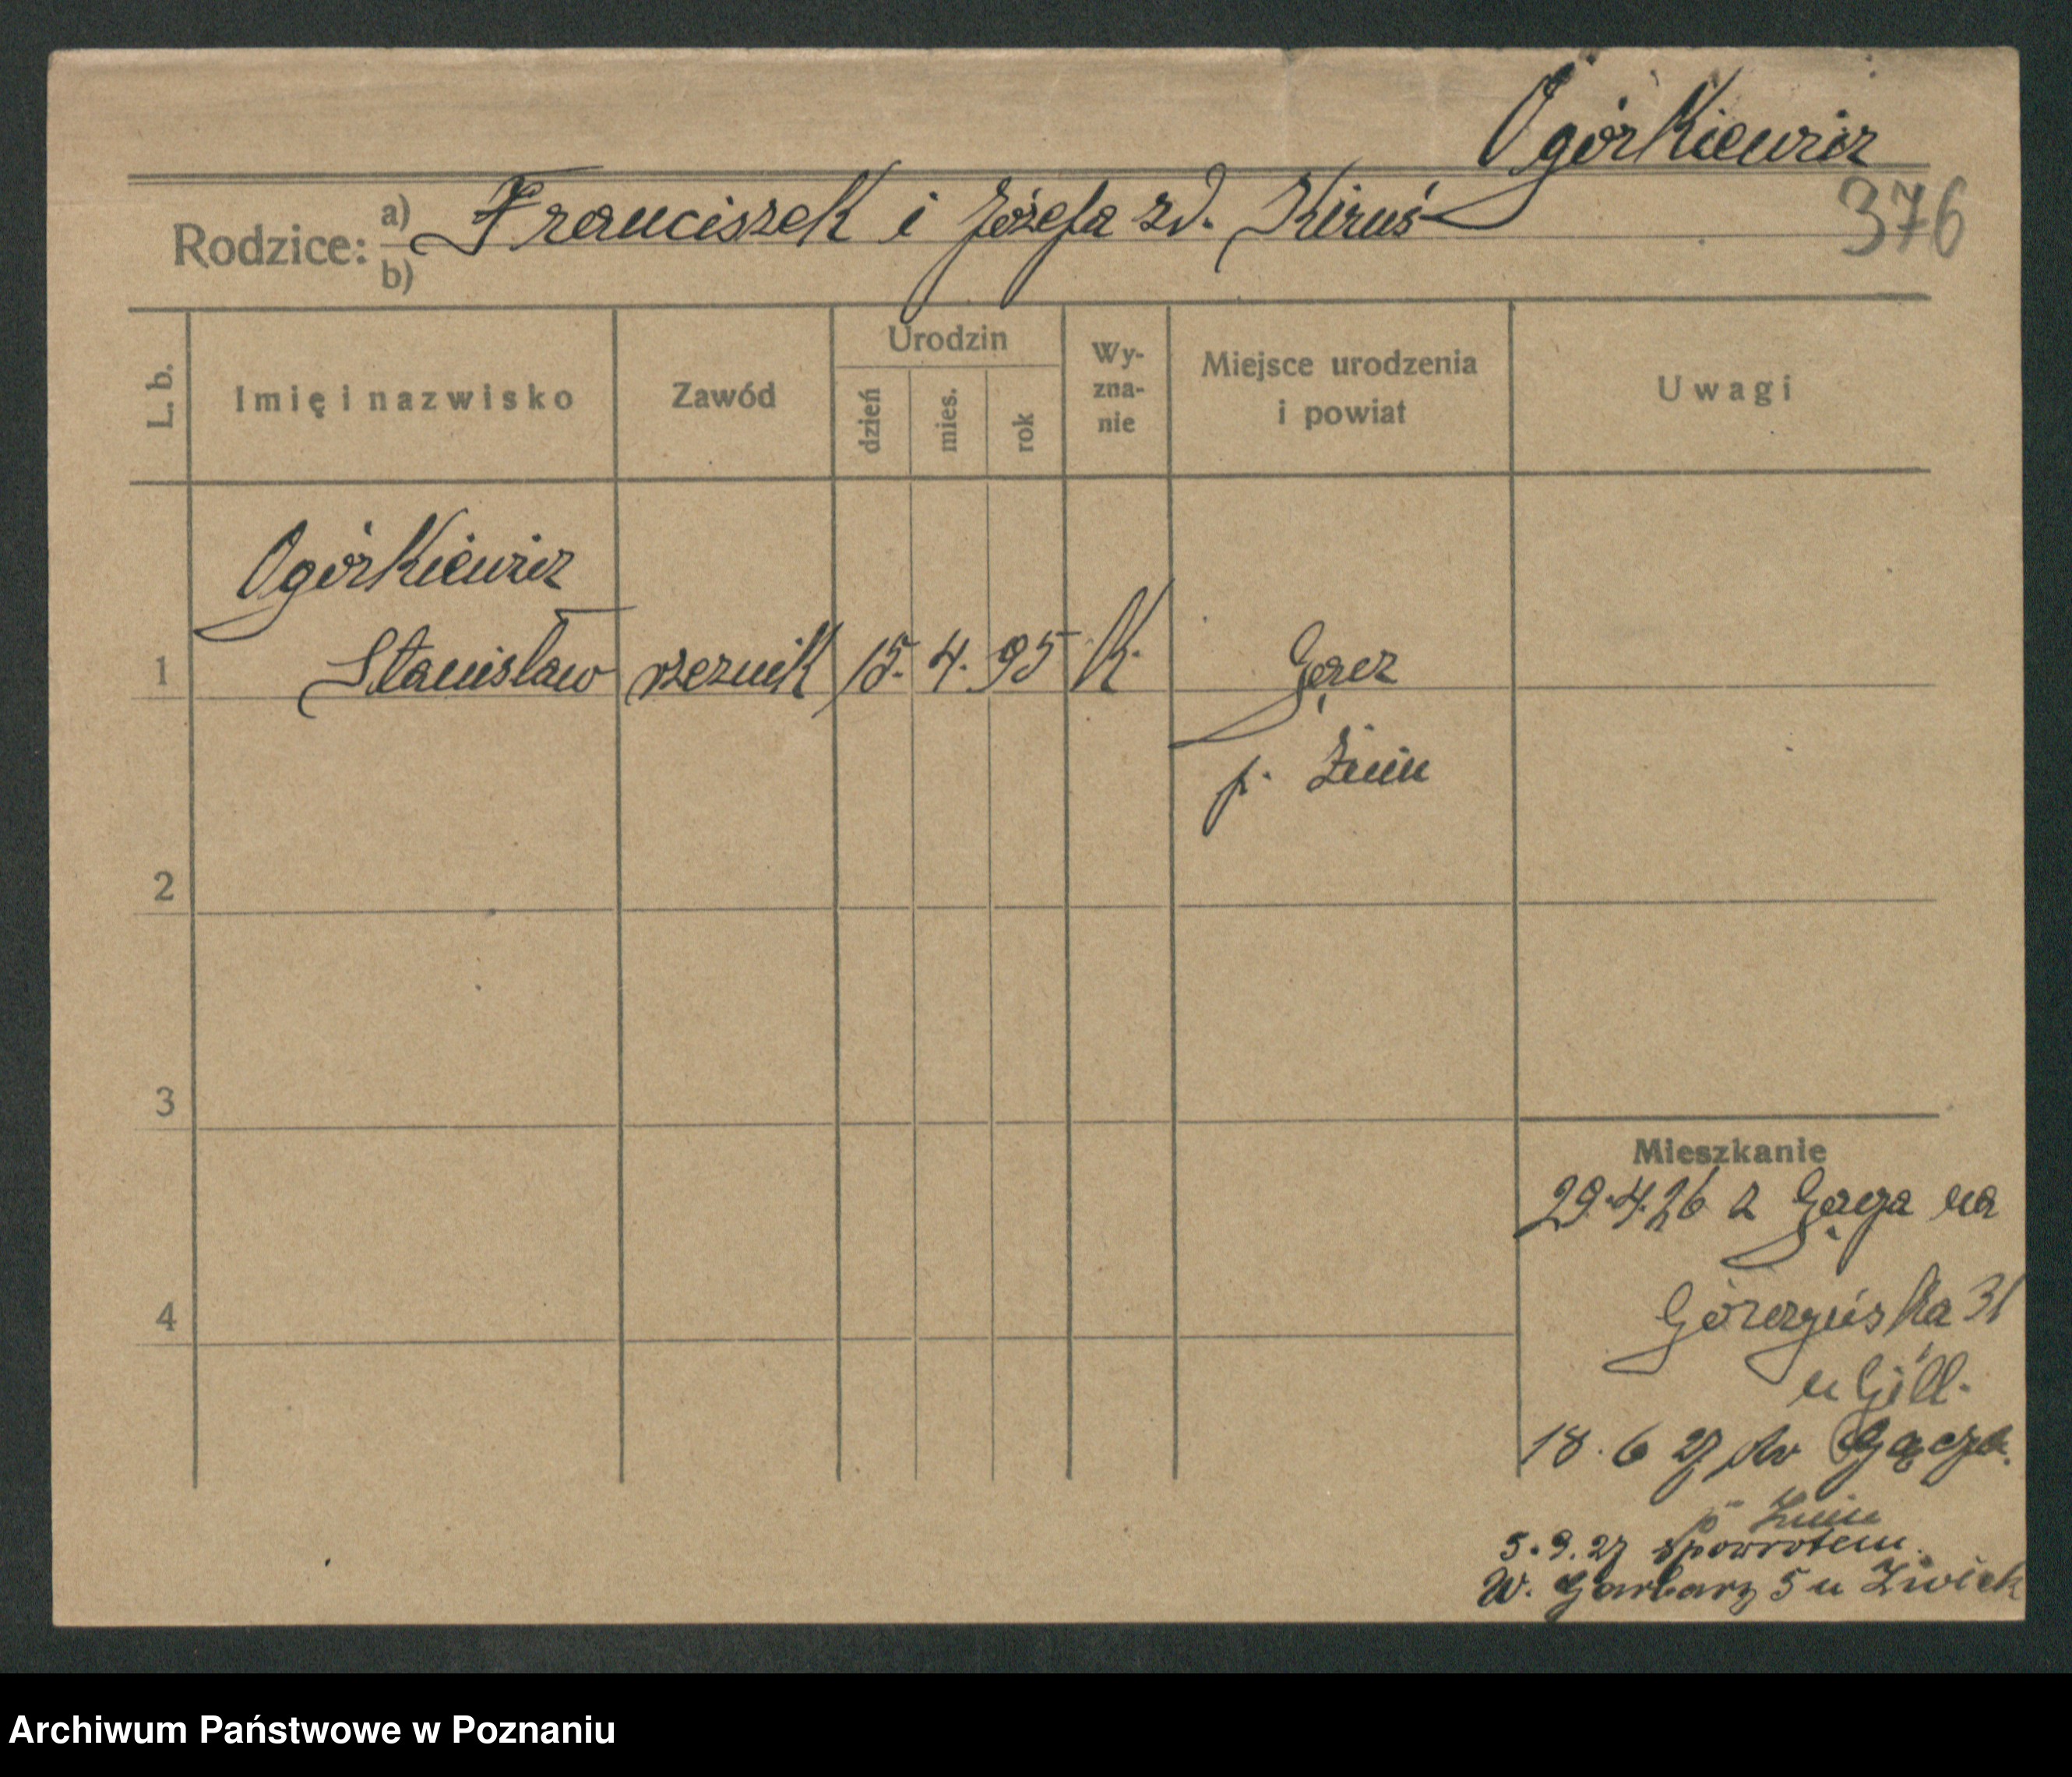 Ogórkiewicz
376
Rodzice: a) Franciszek i Józefa zd. Kiruś
b)
L. b.
Imię i nazwisko
Zawód
Urodzin
dzień
mies.
rok
Wy-
zna-
nie
Miejsce urodzenia
i powiat
Uwagi
Ogórkiewicz
1 Stanisław rzeznik 15. 4. 95 K. Gącz
p. Żnin
2
3
4
Mieszkanie
29.4.26 z Gącza na
Górczyńska 31
u Gill.
18. 6 27 do Gącza.
p Żnin
5. 9. 27 spowrotem
W. Garbary 5 u
Archiwum Państwowe w Poznaniu